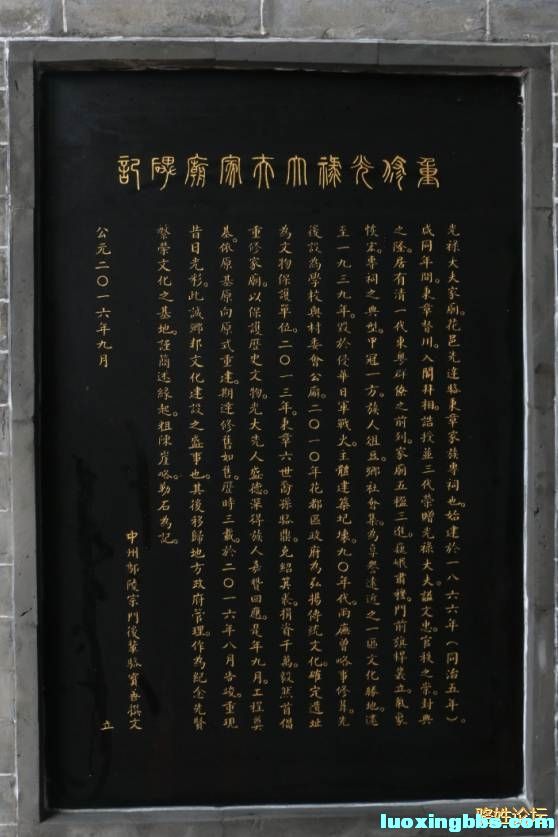 重修光祿大夫家廟碑記
光祿大夫家廟。花邑先達駱秉章家族專祠也。始建於一八六六年（同治五年）。
咸同年間。秉章督川。入閣拜相。誥授並三代榮贈光祿大夫。謚文忠。官秩之崇。封典
之隆。居有清一代東粵群僚之前列。家廟五楹三進。巍峨肅穆。門前旗桿叢立。氣象
恢宏。專祠之典型。甲冠一方。族人俎豆。鄉社會集。為享譽遠近之一區文化勝地。
至一九三九年。毀於侵華日軍戰火。主體建築圮壞。九〇年代。兩廡曾略事修葺。先
後設為學校與村委會公廨。二〇一〇年花都區政府為弘揚傳統文化。確定遺址
為文物保護單位。二〇一三年。秉章六世裔孫駱鼎。克紹箕裘。捐資千萬。毅然首倡
重修家廟。以保護歷史文物。光大先人盛德。深得族人嘉贊回應。是年九月。工程奠
基。依原基原向原式重建。期達修舊如舊。歷時三載。於二〇一六年八月告竣。重現
昔日光彩。此誠鄉邦文化建設之盛事也。其後移歸地方政府管理。作為紀念先賢
繁榮文化之基地。謹簡述緣起。粗陳崖略。勒石為記。
中州鄢陵宗門後輩駱寶善撰文
公元二〇一六年九月
立
駱姓论坛
luoxingbbs.com